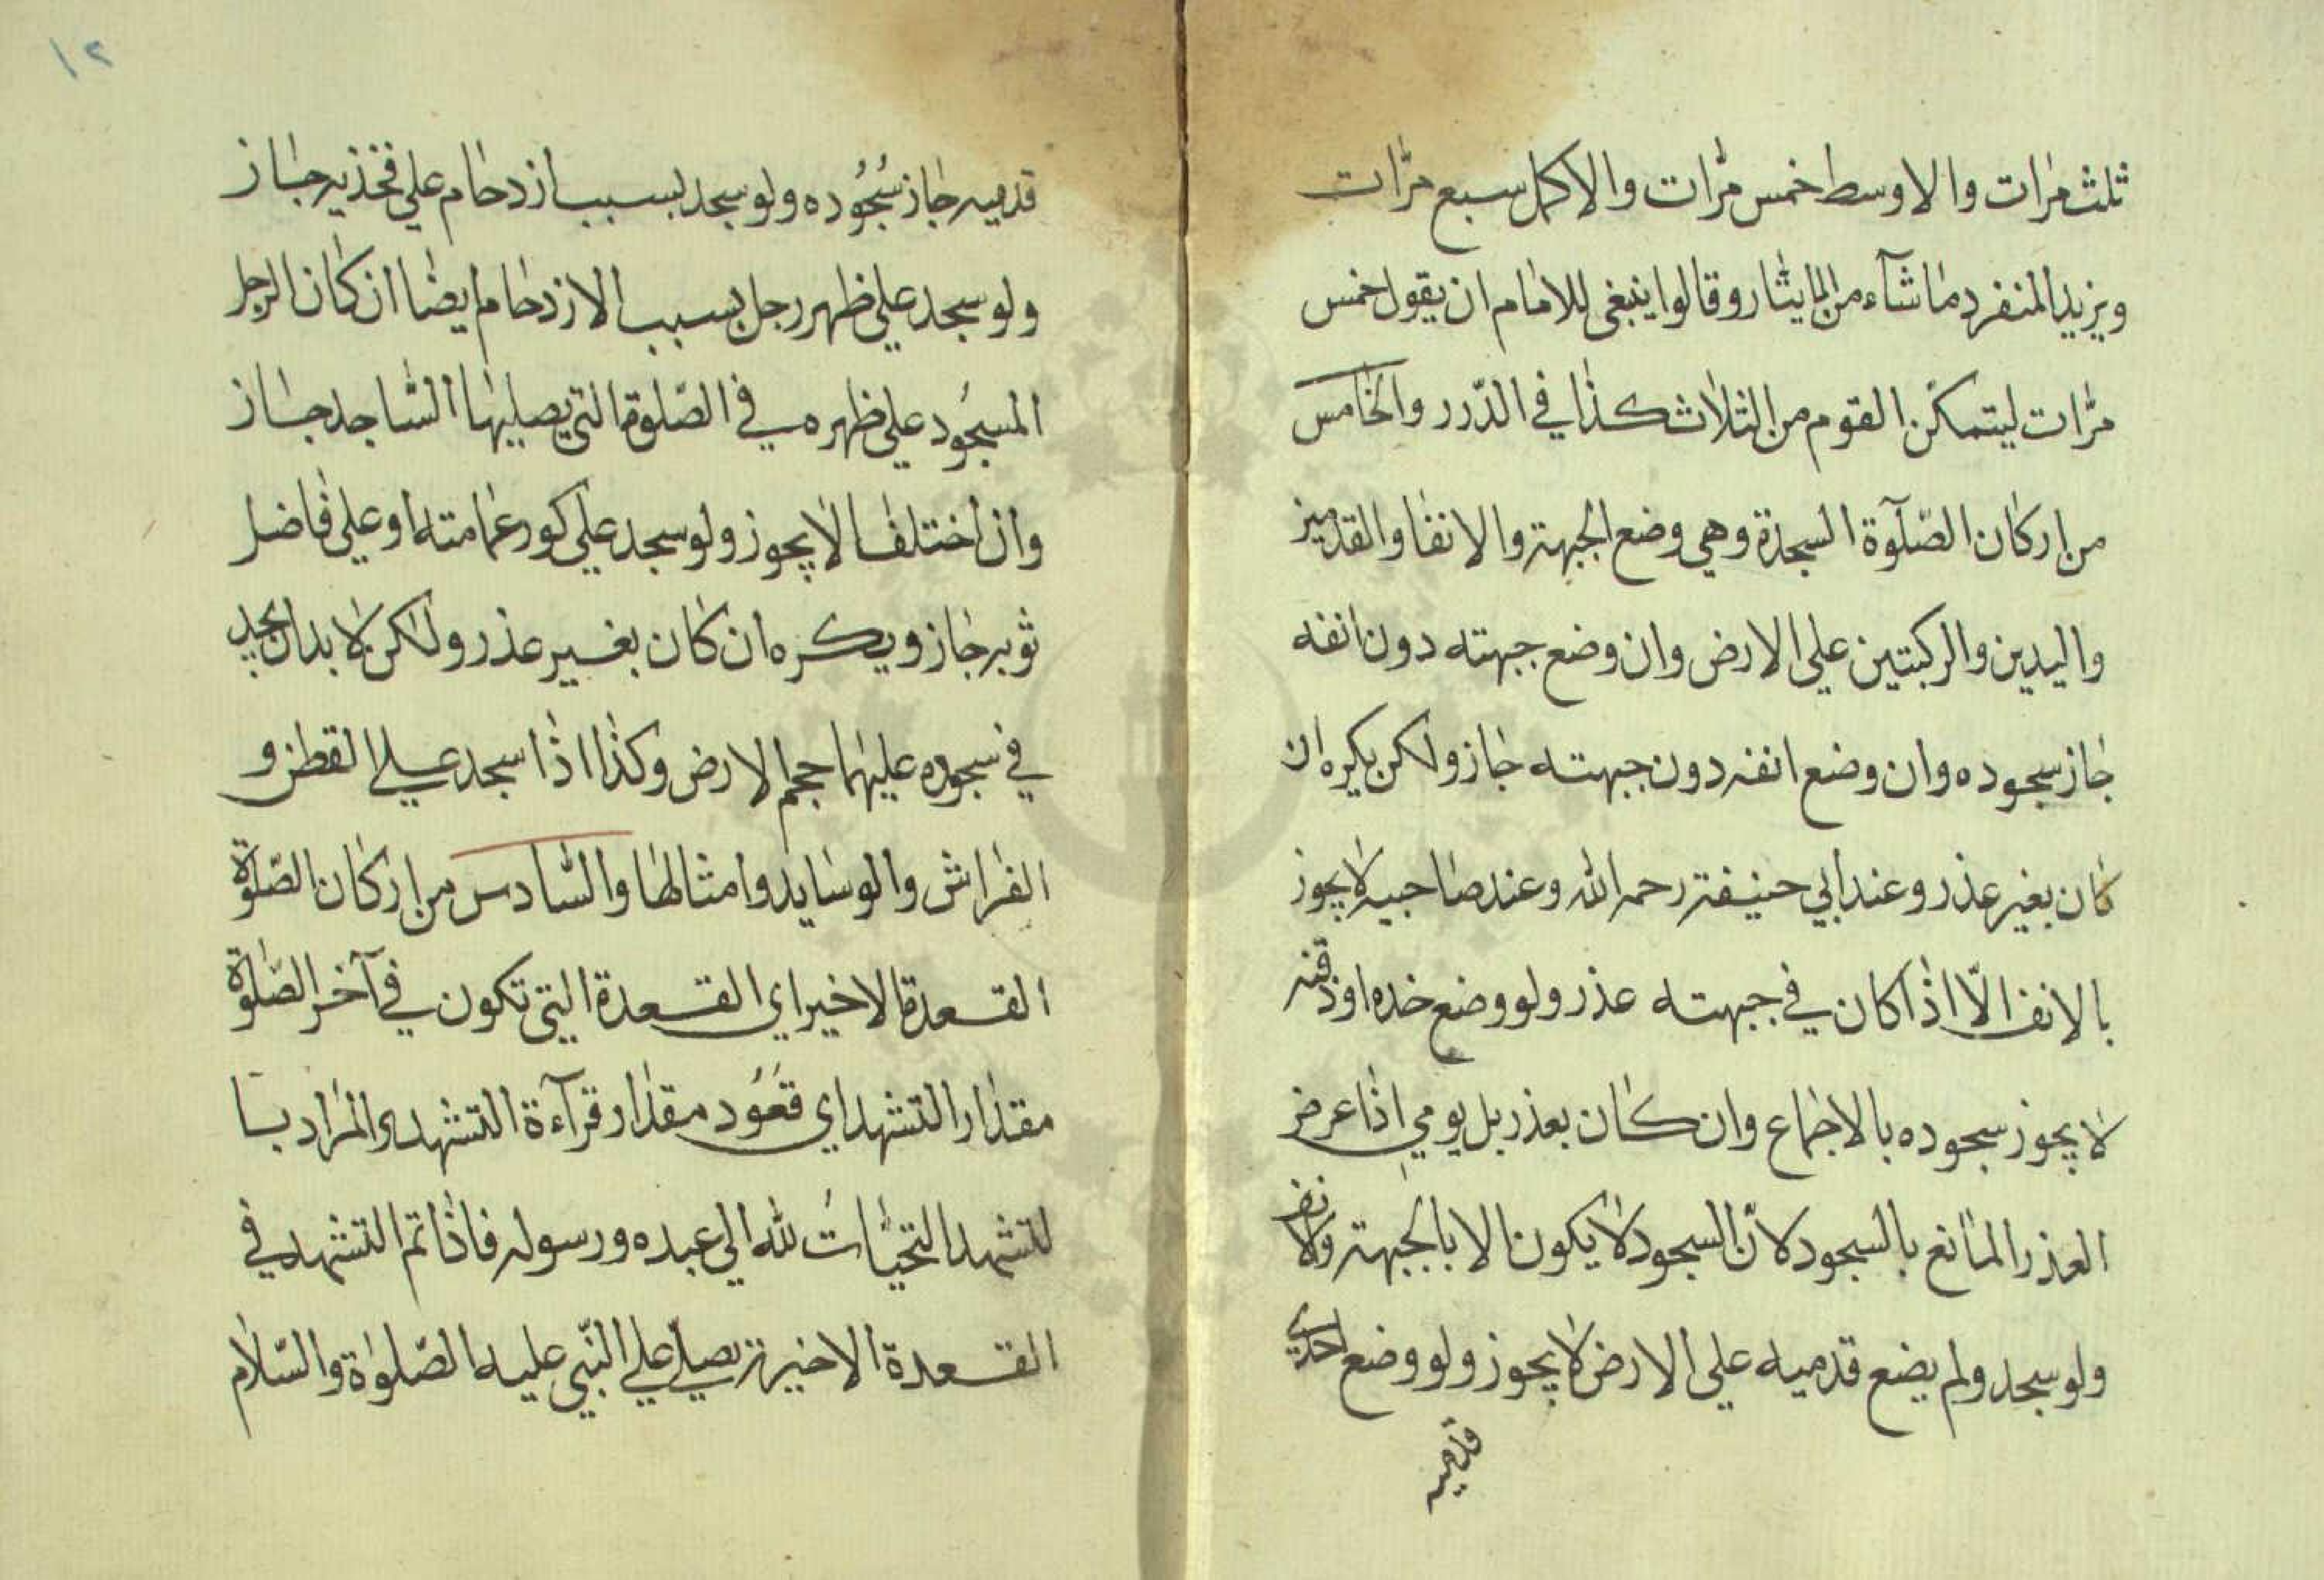 ثلث مرات والاوسط خمس مرّات والاكمل سبع مرّات
ويزيد المنفرد ما شآء من وقالوا ينبغي للامام ان يقول خمس
مرّات ليتمكن القوم من الثلاث كذا في الدّرر والخامس
من اركان الصّلوة السجدة وهي وضع الجبهة والانف والقدمين
واليدين والركبتين علي الارض وان وضع جبهته دون انفه
جاز سجوده وان وضع انفه دون جبهته جاز ولكن يكره ان
كان بغير عذر وعند ابي حنيفة رحمه الله وعند صاحبيه لا يجوز
بالانف الّا اذا كان في جبهته عذر ولو وضع خده او ذقنه
لا يجوز سجوده بالاجماع وان كان بعذر بل يومي اذا عرض
العذر المانع بالسجود لانّ السجود لا يكون الا بالجبهة والانف
ولو سجد ولم يضع قدميه علي الارض لا يجوز ولو وضع احدي
قدميه
١٢
قدميه جاز سُجُوده ولو سجد بسبب ازدحام علي فخذيه جاز
ولو سجد علي ظهر رجل بسبب الازدحام ايضا ان كان الرجل
المسجُود علي ظهره في الصّلوة التي يصليها السّاجد جاز
وان اختلفا لا يجوز ولو سجد علي كور عمامته او علي فاضل
ثوبه جاز ويكره ان كان بغير عذر ولكن لا بد ان يجد
في سجوده عليهما حجم الارض وكذا اذا سجد علي القطن و
الفراش والوسايد وامثالها والسّادس من اركان الصّلوة
القعدة الاخير اي القعدة التي تكون في آخر الصّلوة
مقدار التشهد اي قعُود مقدار قرآءة التشهد والمراد با
لتشهد التحيّاتُ لله الي عبده ورسوله فاذا تم التشهد في
القعدة الاخيرة يصلي علي النّبي عليه الصّلوة والسّلام